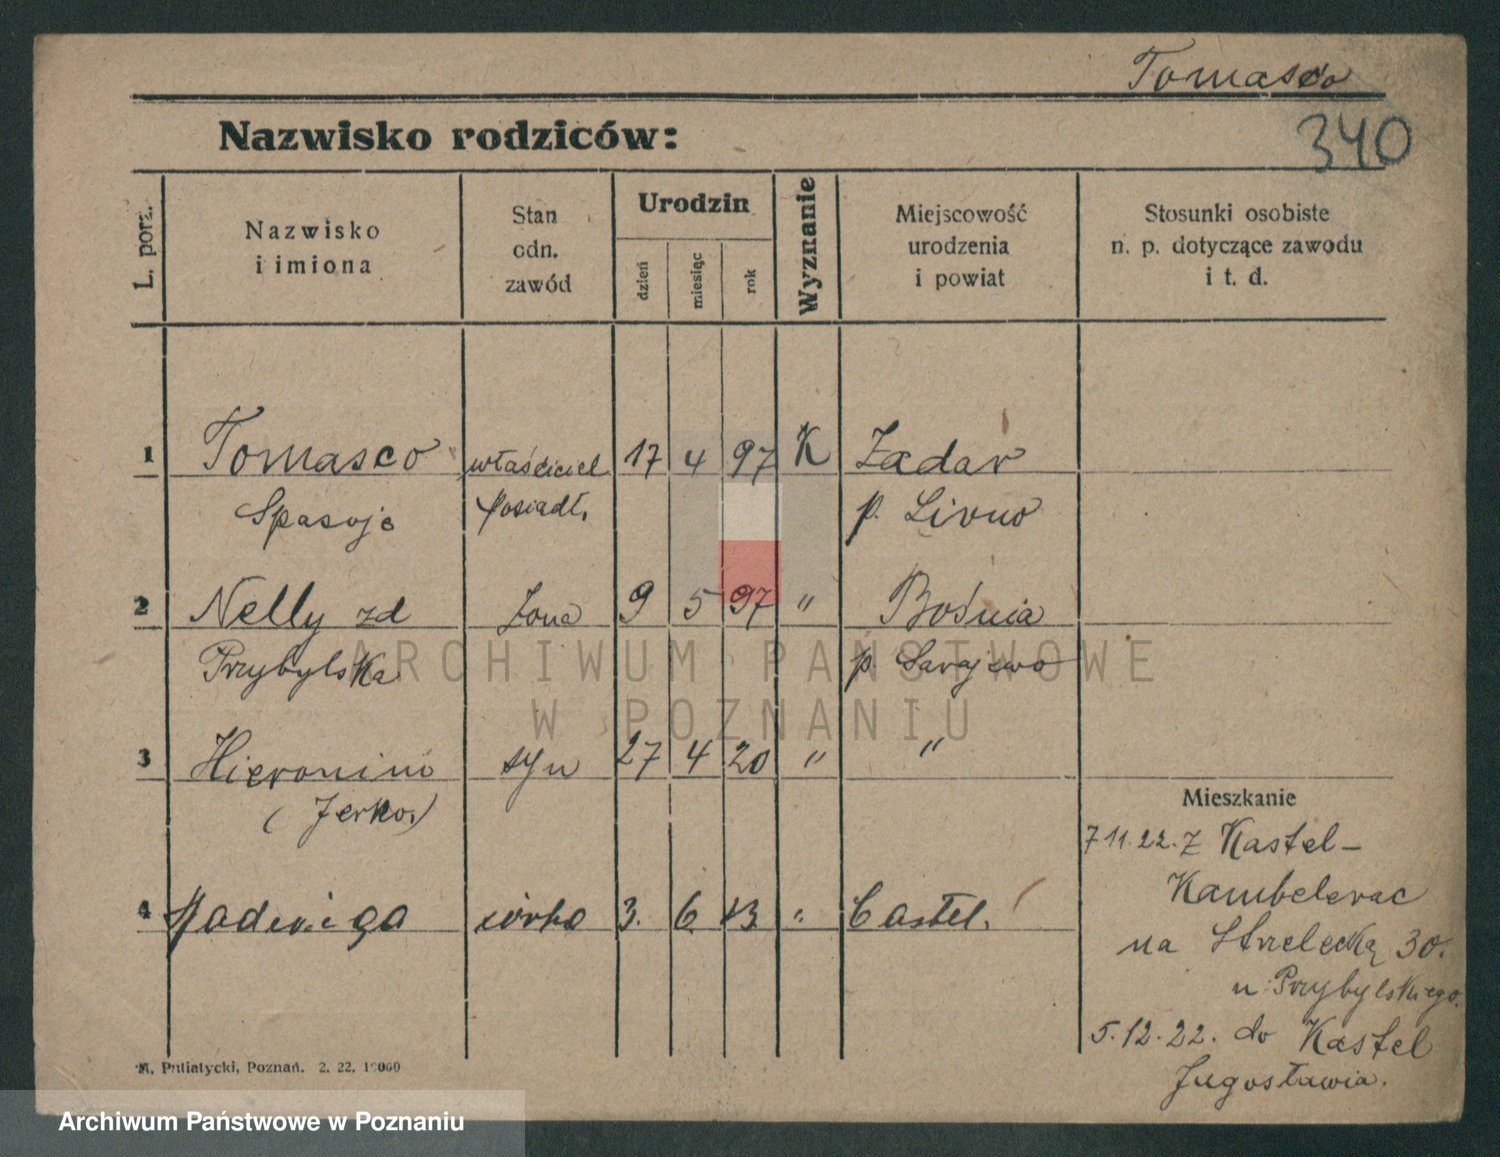 Tomasco
340
Nazwisko rodziców:
L. porz.
Nazwisko
i imiona
Stan
odn.
zawód
Urodzin
dzień
miesiąc
rok
Wyznanie
Miejscowość
urodzenia
i powiat
Stosunki osobiste
n. p. dotyczące zawodu
i t. d.
1 Tomasco właściciel 17 4 97 K Zadar
Spasoje posiadł. p. Livno
2 Nelly zd żona 9 5 97 " Bośnia
Przybylska p. Sarajewo
3 Hieronim syn 27 4 20 " "
(Jerko)
4 Jadwiga córka 3. 6 13 " Castel.
Mieszkanie
7 11. 22. z Kastel-
Kambelevac
na Strzelecką 30.
u Przybylskiego.
5. 12. 22. do Kastel
Jugosławia.
M. Putiatycki, Poznań. 2. 22. 10000
ARCHIWUM PAŃSTWOWE
W POZNANIU
Archiwum Państwowe w Poznaniu